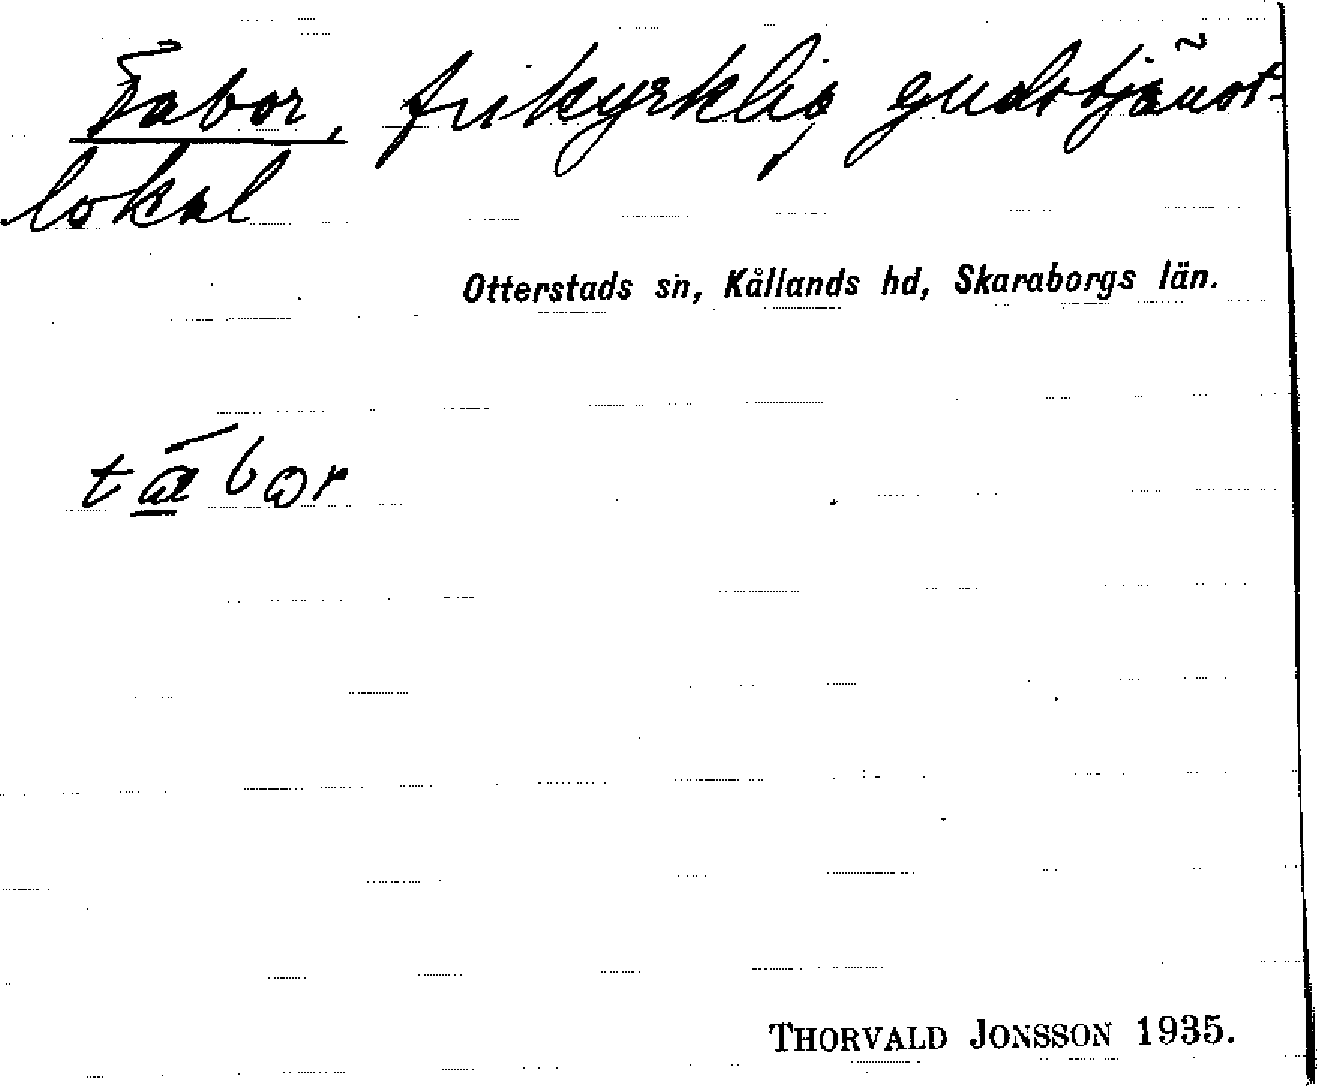 Tabor, frikyrklig gudstjänst-
lokal
Otterstads sn, Kållands hd, Skaraborgs län.
tábor
THORVALD JONSSON 1935.